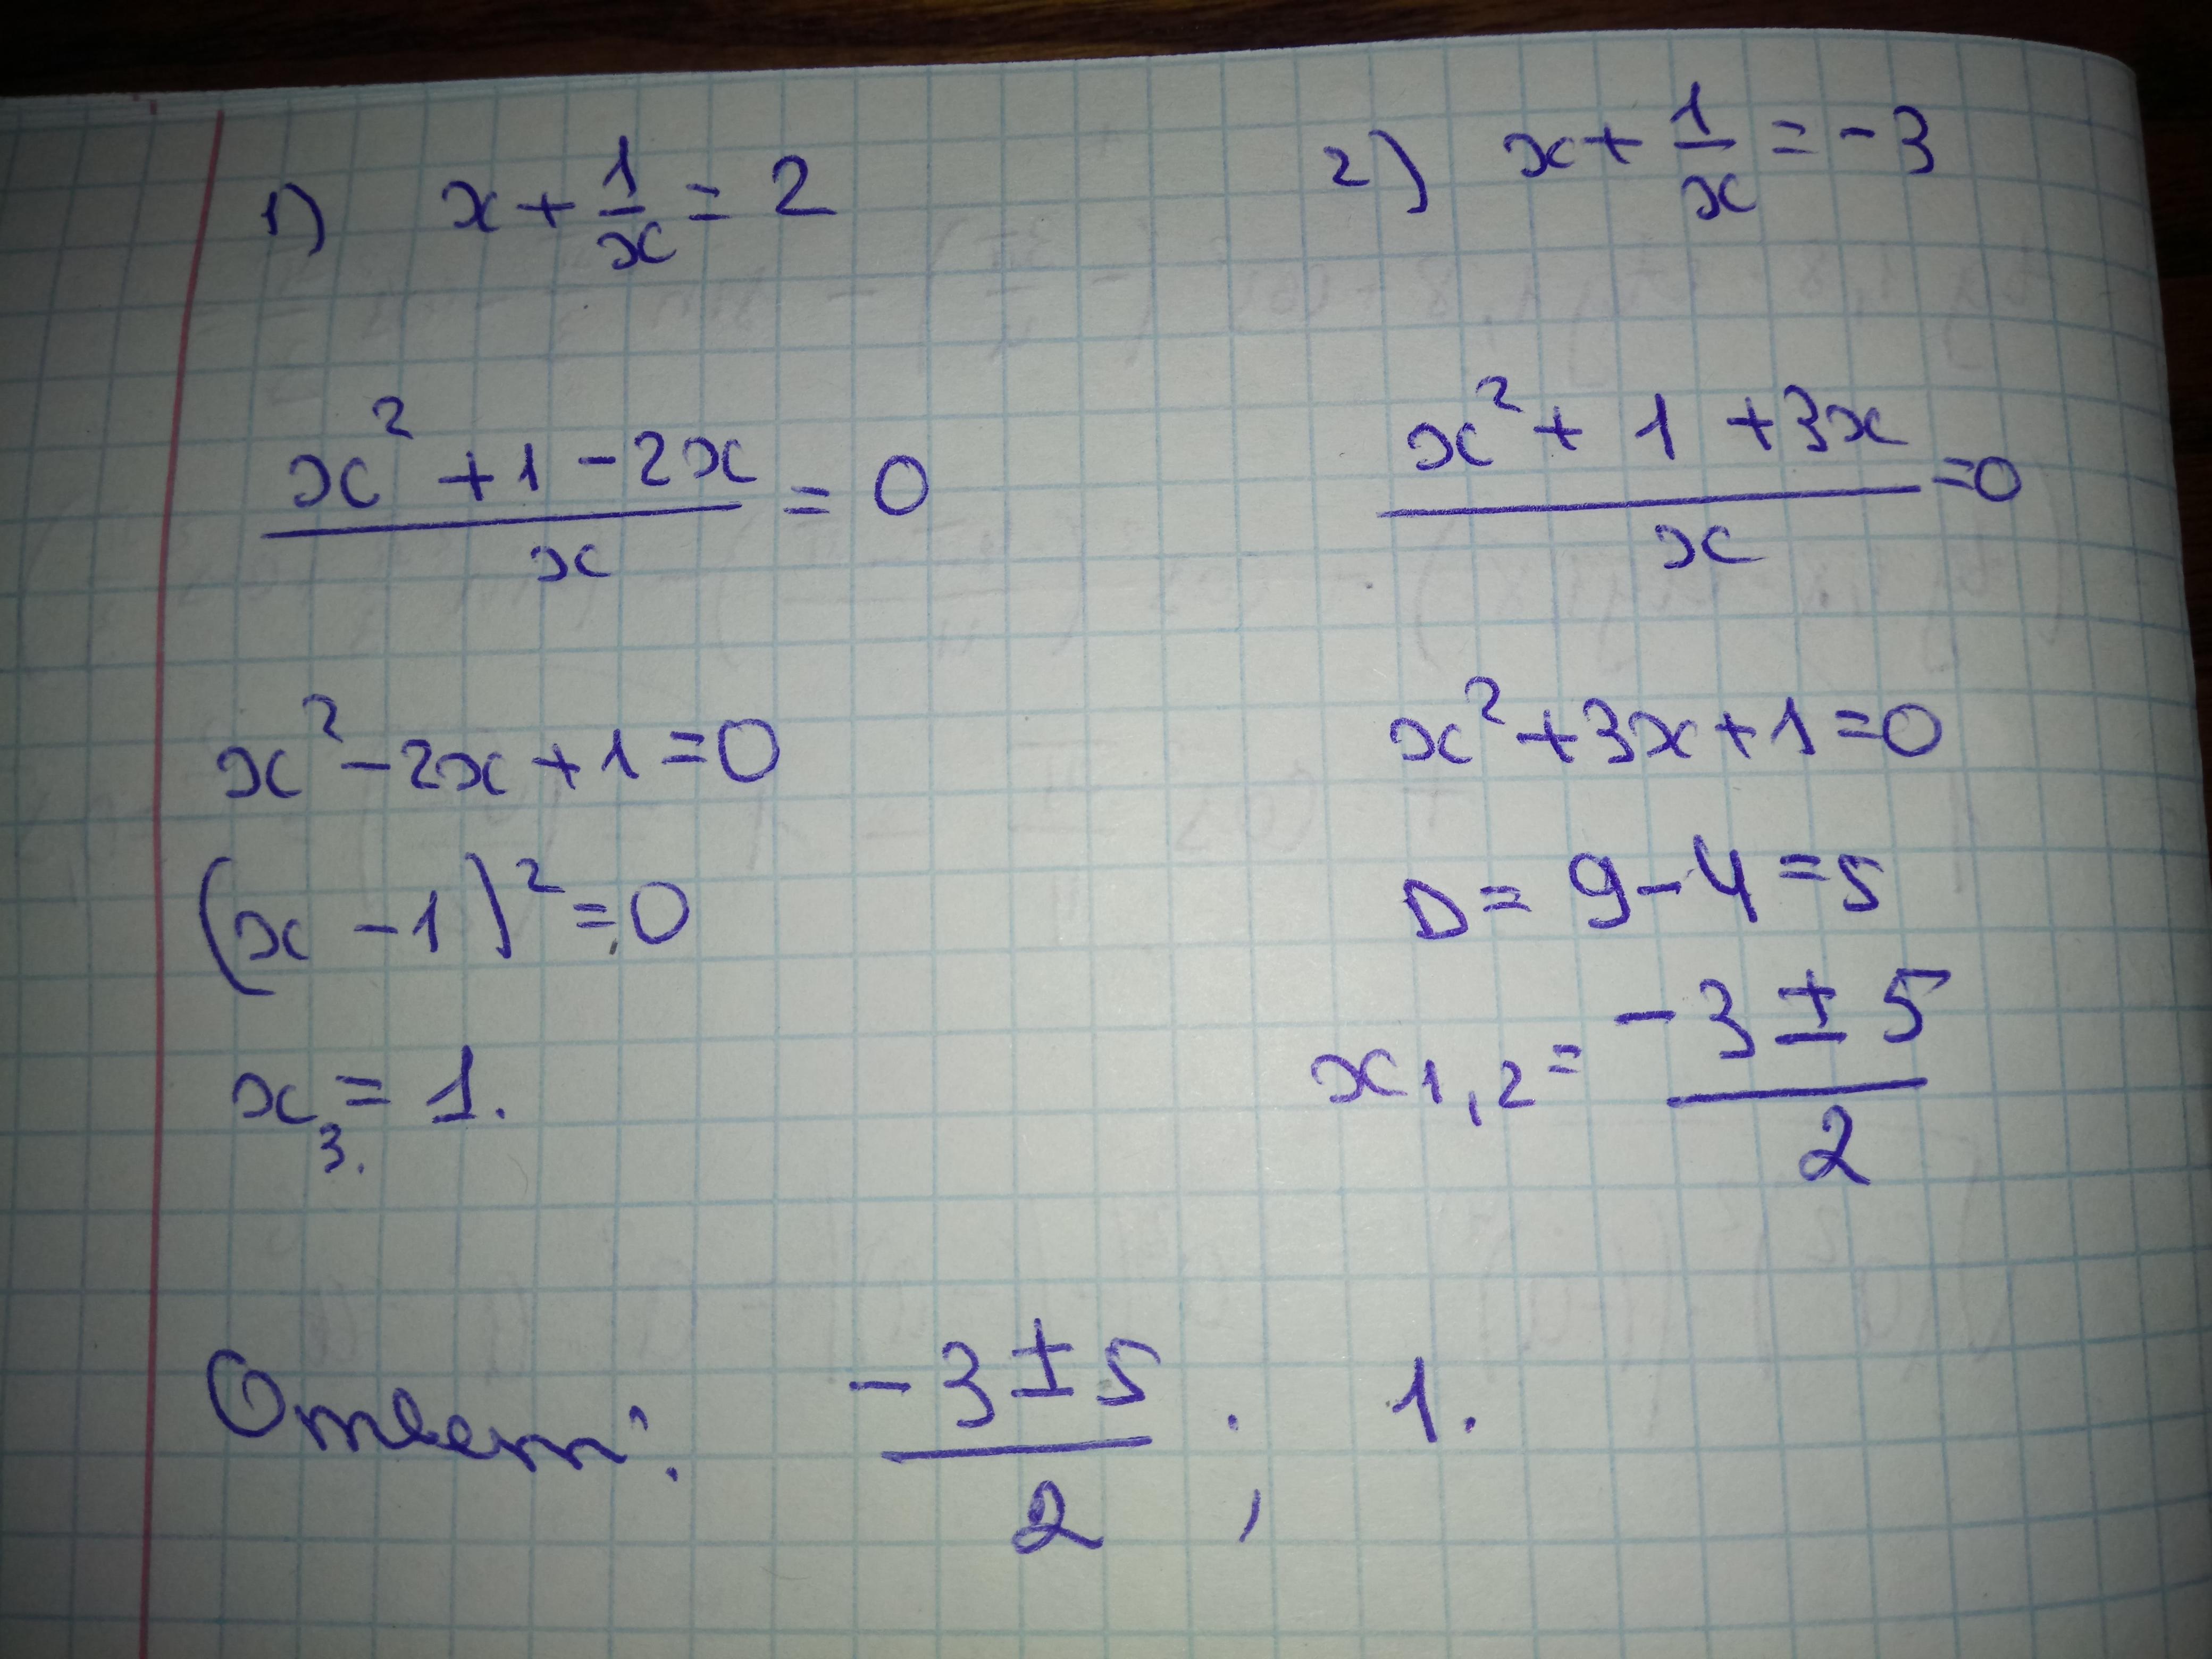 1) x + 1/x = 2
(x² + 1 - 2x)/x = 0
x² - 2x + 1 = 0
(x - 1)² = 0
x₃ = 1.
2) x + 1/x = -3
(x² + 1 + 3x)/x = 0
x² + 3x + 1 = 0
D = 9 - 4 = 5
x₁,₂ = (-3 ± 5)/2
Ответ: (-3 ± 5)/2 ; 1.